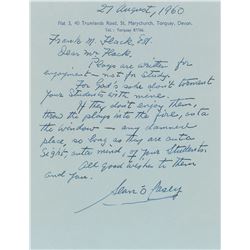 27 August, 1960
Flat 3, 40 Trumlands Road, St. Marychurch, Torquay, Devon.
Tel: Torquay 87766.
Frank M. Flack, Esq.
Dear Mr Flack.
Plays are written for
enjoyment - not for Study.
For God's sake don't torment
your Students with mine.
If they don't enjoy them,
throw the plays into the fire, outa
the window — any damned
place, so long as they are outa
Sight, outa mind, of your Students.
All good wishes to them
and you.
Sean O'Casey